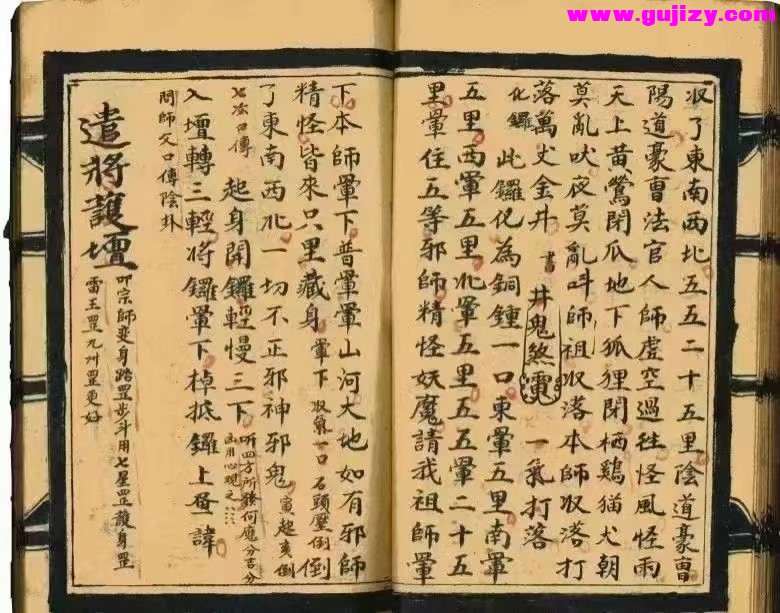 www.gujizy.com
收了東南西北五五二十五里陰道豪曺
陽道豪曺法官人師虛空過往怪風怪雨
天上黃鶯閉爪地下狐狸閉栖鷄猫犬朝
莫亂吠夜莫亂呌師祖收落本師收落打
落萬丈金井 書 井鬼煞 一炁打落
化鑼 此鑼化為銅鍾一口東暈五里南暈
五里西暈五里北暈五里五五暈二十五
里暈住五等邪師精怪妖魔請我祖師暈
下本師暈下普暈暈山河大地如有邪師
精怪皆來只里藏身 暈下 收氣一口 石頭壓倒 倒
了東南西北一切不正邪神邪鬼 寅起亥倒
口傳 起身開鑼輕慢三下 听四方所發何應分吉凶 用心觀之
入壇轉三輕将鑼暈下棹抵鑼上 諱
問師父口傳陰卦
遣將護壇 叩宗師变身踏罡步斗用七星罡護身罡
雷王罡九州罡更好